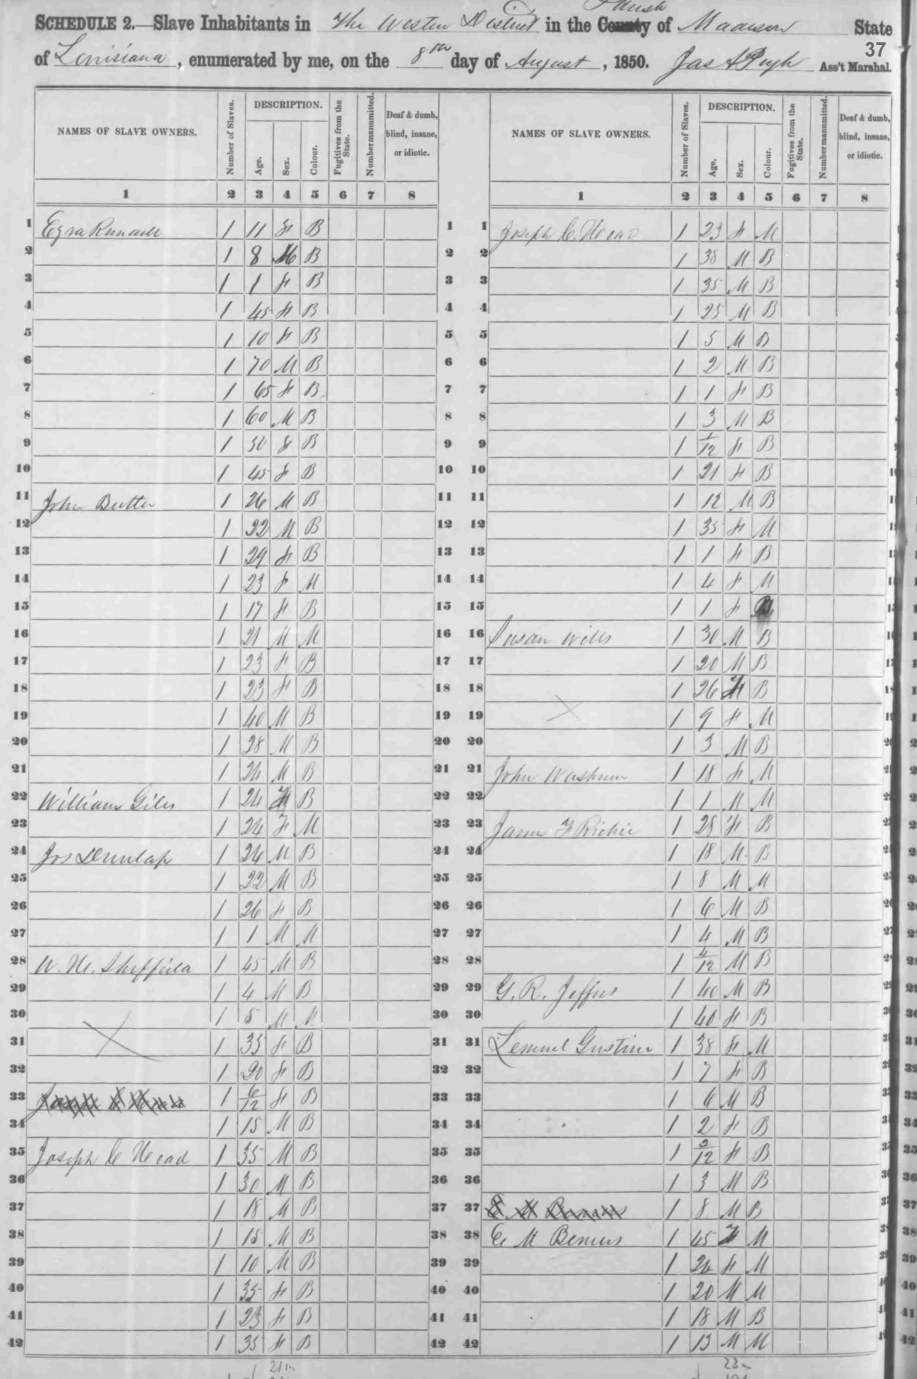 SCHEDULE 2.—Slave Inhabitants in The Western District in the County Parish of Madison State
of Louisiana, enumerated by me, on the 8th day of August, 1850. Jas A Pugh Ass't Marshal.
37
NAMES OF SLAVE OWNERS. Number of Slaves. DESCRIPTION. Age. Sex. Colour. Fugitives from the State. Number manumitted. Deaf & dumb, blind, insane, or idiotic.
1 2 3 4 5 6 7 8
1 Ezra 1 11 F B 1
2 1 8 M B 2
3 1 1 F B 3
4 1 45 F B 4
5 1 10 F B 5
6 1 70 M B 6
7 1 65 F B 7
8 1 60 M B 8
9 1 30 F B 9
10 1 45 F B 10
11 John 1 26 M B 11
12 1 22 M B 12
13 1 29 F B 13
14 1 23 F M 14
15 1 17 F B 15
16 1 21 M M 16
17 1 23 F B 17
18 1 23 F B 18
19 1 40 M B 19
20 1 28 M B 20
21 1 26 M B 21
22 William Giles 1 24 F B 22
23 1 24 F M 23
24 Jos Dunlap 1 24 M B 24
25 1 22 M B 25
26 1 26 F B 26
27 1 1 M M 27
28 W. H. Sheffield 1 45 M B 28
29 1 4 M B 29
30 1 5 M 30
31 1 35 F B 31
32 1 F B 32
33 1 6/12 F B 33
34 1 15 M B 34
35 Joseph C Head 1 35 M B 35
36 1 30 M B 36
37 1 18 M B 37
38 1 15 M B 38
39 1 10 M B 39
40 1 35 F B 40
41 1 23 F B 41
42 1 35 F B 42
NAMES OF SLAVE OWNERS. Number of Slaves. DESCRIPTION. Age. Sex. Colour. Fugitives from the State. Number manumitted. Deaf & dumb, blind, insane, or idiotic.
1 2 3 4 5 6 7 8
1 Joseph C. Head 1 23 F M
2 1 38 M B
3 1 35 M B
4 1 25 M B
5 1 5 M B
6 1 2 M B
7 1 1 F B
8 1 3 M B
9 1 1/12 F B
10 1 21 F B
11 1 12 M B
12 1 35 F M
13 1 1 F B
14 1 4 F M
15 1 1 F
16 Susan Wills 1 30 M B
17 1 20 M B
18 1 26 F B
19 1 9 F M
20 1 3 M B
21 John Washum 1 18 F M
22 1 1 M M
23 James F Richie 1 28 F B
24 1 18 M B
25 1 8 M M
26 1 6 M B
27 1 4 M B
28 1 4/12 M B
29 G. R. Jeffers 1 40 M B
30 1 40 F B
31 Lemuel Gustine 1 38 F M
32 1 7 F B
33 1 6 M B
34 1 2 F B
35 1 2/12 F B
36 1 3 M B
37 1 8 M B
38 C M Bemus 1 45 F M
39 1 26 F M
40 1 20 M M
41 1 18 M B
42 1 13 M M